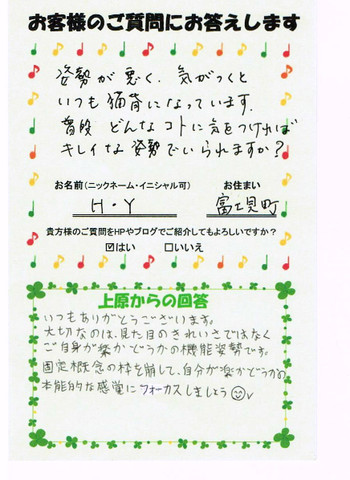 お客様のご質問にお答えします
姿勢が悪く、気がつくと
いつも猫背になっています。
普段 どんなコトに気をつければ
キレイな姿勢でいられますか?
お名前(ニックネーム・イニシャル可)
お住まい
H・Y
富士見町
貴方様のご質問をHPやブログでご紹介してもよろしいですか?
☑はい □いいえ
上原からの回答
いつもありがとうございます。
大切なのは、見た目のきれいさではなく
ご自身が楽かどうかの機能姿勢です。
固定概念の枠を崩して、自分が楽かどうかの
本能的な感覚にフォーカスしましょう